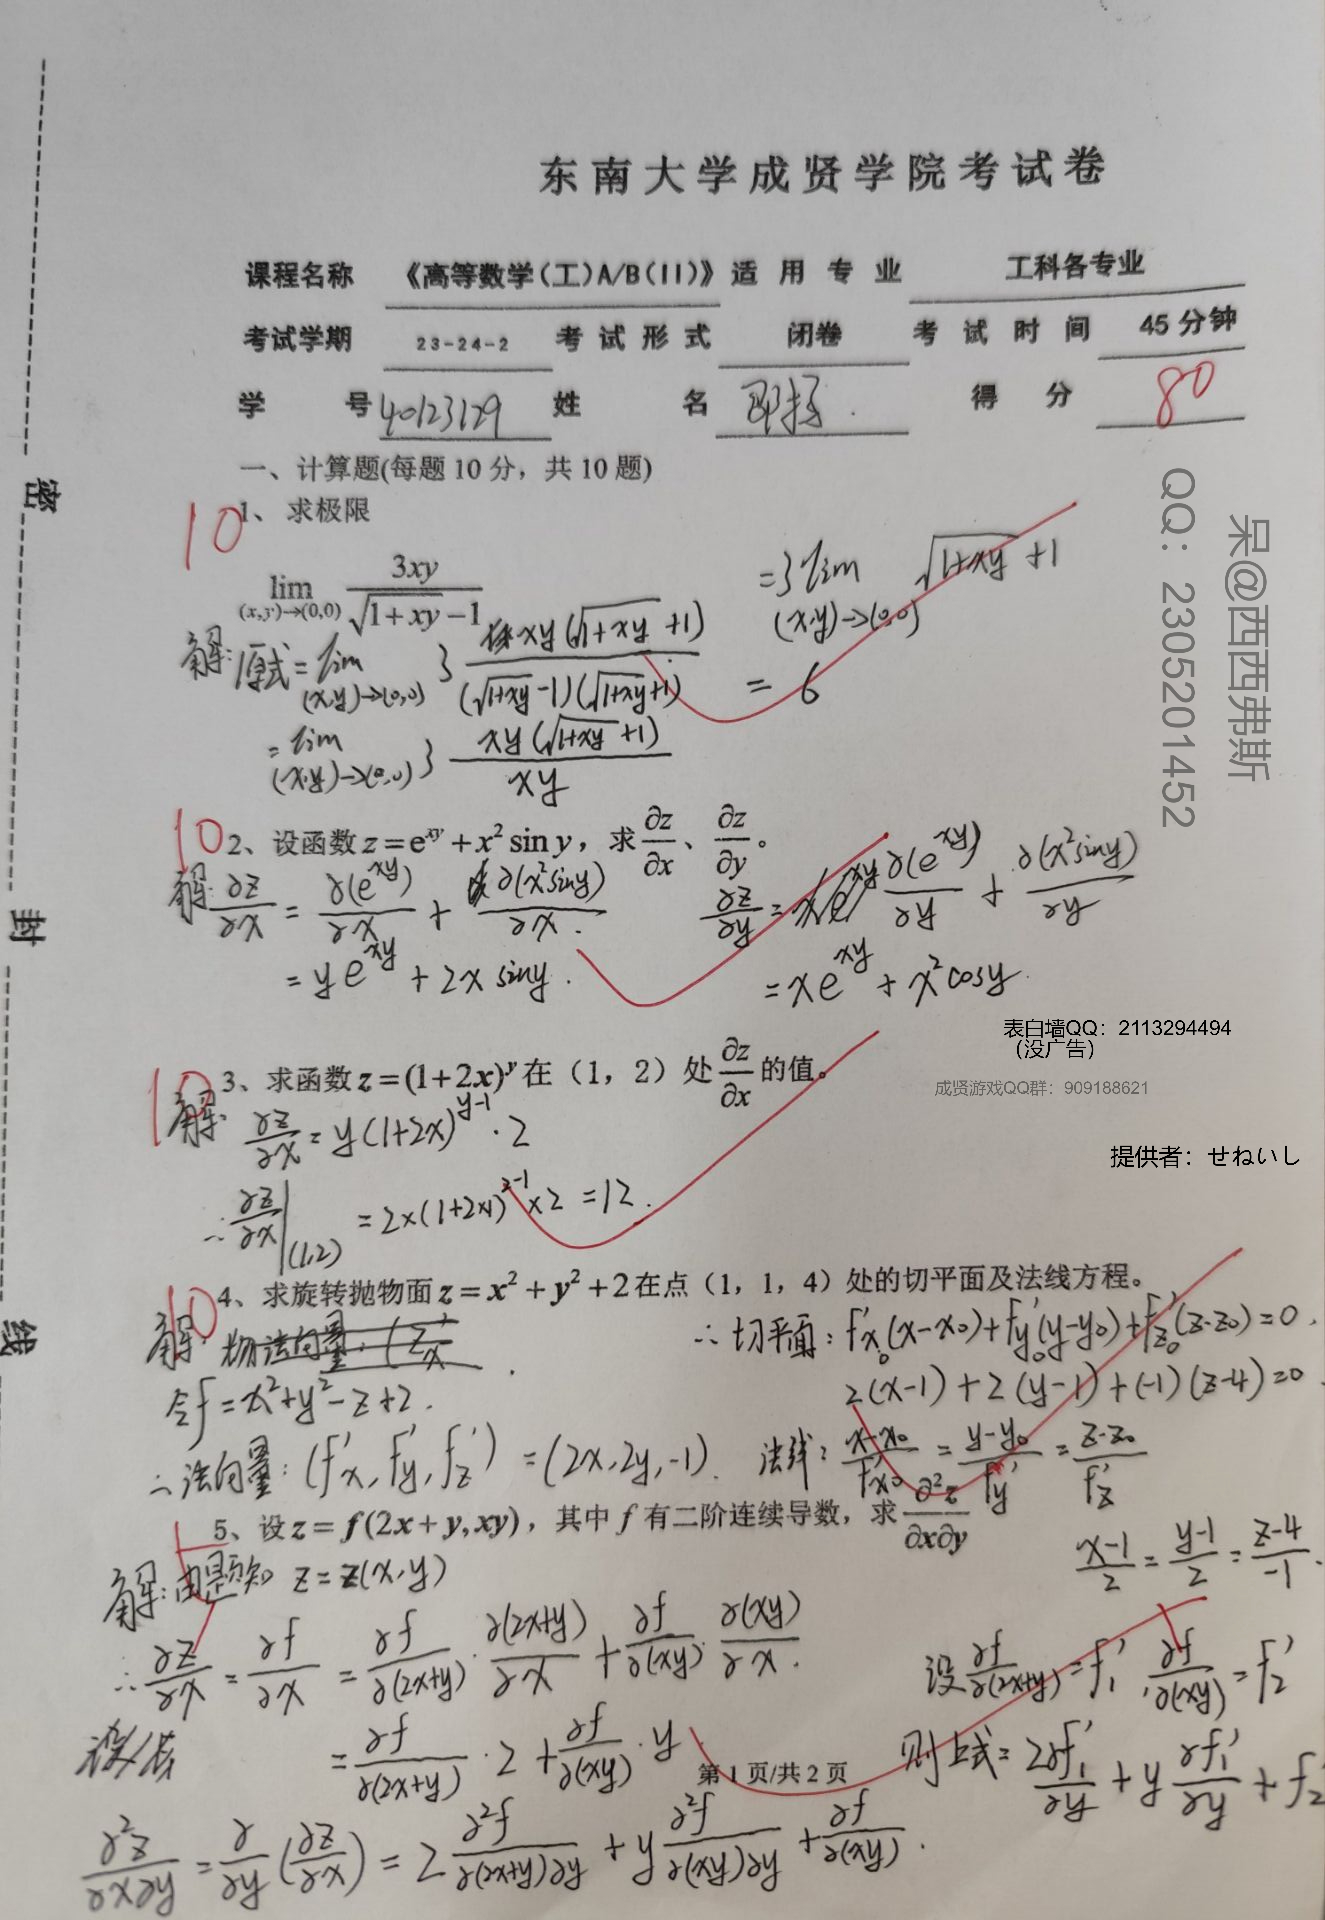 东南大学成贤学院考试卷
课程名称 《高等数学(工)A/B(II)》 适用专业 工科各专业
考试学期 23-24-2 考试形式 闭卷 考试时间 45分钟
学号 40123129 姓名 得分 80
一、计算题(每题10分，共10题)
10 1、求极限
lim (x,y)→(0,0) 3xy/(√(1+xy) -1)
解：原式= lim (x,y)→(0,0) 3 xy(√(1+xy) +1)/((√(1+xy) -1)(√(1+xy)+1))
= lim (x,y)→(0,0) 3 xy(√(1+xy) +1)/xy
=3 lim (x,y)→(0,0) √(1+xy) +1
= 6
10 2、设函数 z=e^xy + x² sin y，求 ∂z/∂x、∂z/∂y。
解：∂z/∂x = ∂(e^xy)/∂x + ∂(x²siny)/∂x.
= ye^xy + 2x siny.
∂z/∂y = ∂(e^xy)/∂y + ∂(x²siny)/∂y
= xe^xy + x²cosy.
10 3、求函数 z=(1+2x)^y 在（1，2）处 ∂z/∂x 的值。
解：∂z/∂x = y(1+2x)^(y-1)·2
∴ ∂z/∂x|(1,2) = 2×(1+2×1)^(2-1)×2 =12.
10 4、求旋转抛物面 z=x²+y²+2在点（1，1，4）处的切平面及法线方程。
解：
令f=x²+y²-z+2.
∴法向量：(f'x, f'y, f'z) =(2x,2y,-1).
∴切平面：f'x₀(x-x₀)+f'y₀(y-y₀)+f'z₀(z-z₀)=0.
2(x-1)+2(y-1)+(-1)(z-4)=0.
法线：(x-x₀)/f'x₀ = (y-y₀)/f'y = (z-z₀)/f'z
(x-1)/2 = (y-1)/2 = (z-4)/-1.
5、设 z= f(2x+y,xy)，其中 f 有二阶连续导数，求 ∂²z/∂x∂y
解：由题知 z=z(x,y)
∴ ∂z/∂x = ∂f/∂x = ∂f/∂(2x+y)·∂(2x+y)/∂x + ∂f/∂(xy)·∂(xy)/∂x.
= ∂f/∂(2x+y)·2 + ∂f/∂(xy)·y
∂²z/∂x∂y = ∂/∂y(∂z/∂x) = 2 ∂²f/∂(2x+y)∂y + y ∂²f/∂(xy)∂y + ∂f/∂(xy).
设 ∂f/∂(2x+y) = f₁', ∂f/∂(xy) = f₂'
则上式= 2∂f₁'/∂y + y ∂f₁'/∂y + f₂'
第1页/共2页
密
封
线
QQ：2305201452
呆@西西弗斯
表白墙QQ：2113294494
（没广告）
成贤游戏QQ群：909188621
提供者：せねいし